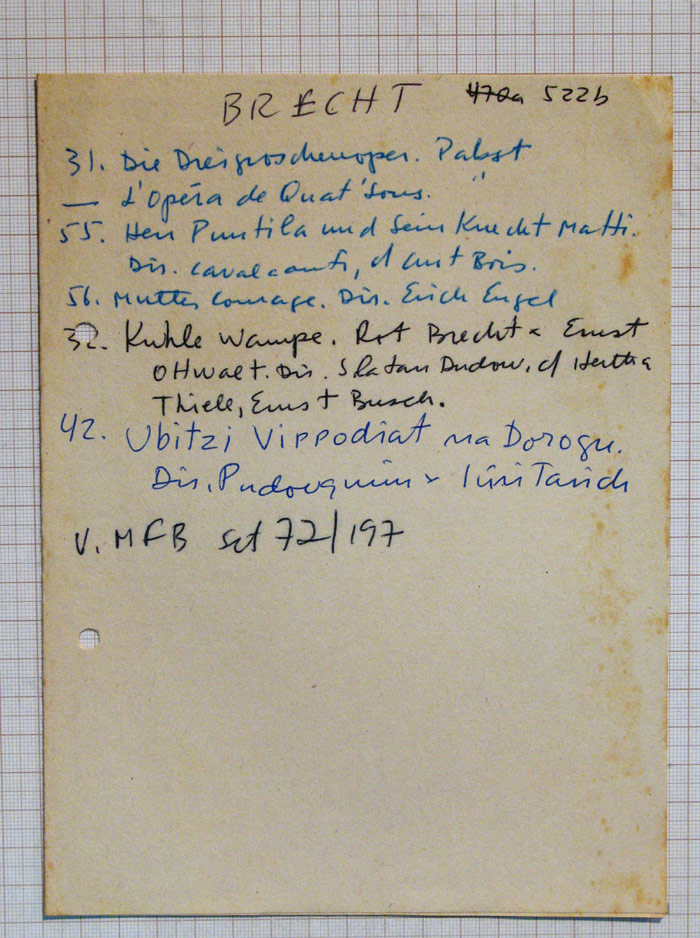 BRECHT 470a 522b
31. Die Dreigroschenoper. Pabst
— L'Opéra de Quat'Sous. "
55. Herr Puntila und Sein Knecht Matti.
Dir. Cavalcanti, c/ Curt Bois.
56. Mutter Courage. Dir. Erich Engel
32. Kuhle Wampe. Rot Brecht & Ernst
Ottwalt. Dir. Slatan Dudow, c/ Hertha
Thiele, Ernst Busch.
42. Ubitzi Vippodiat na Dorogu.
Dir. Pudovquim & Iúri Tarich
V. MFB set 72/197